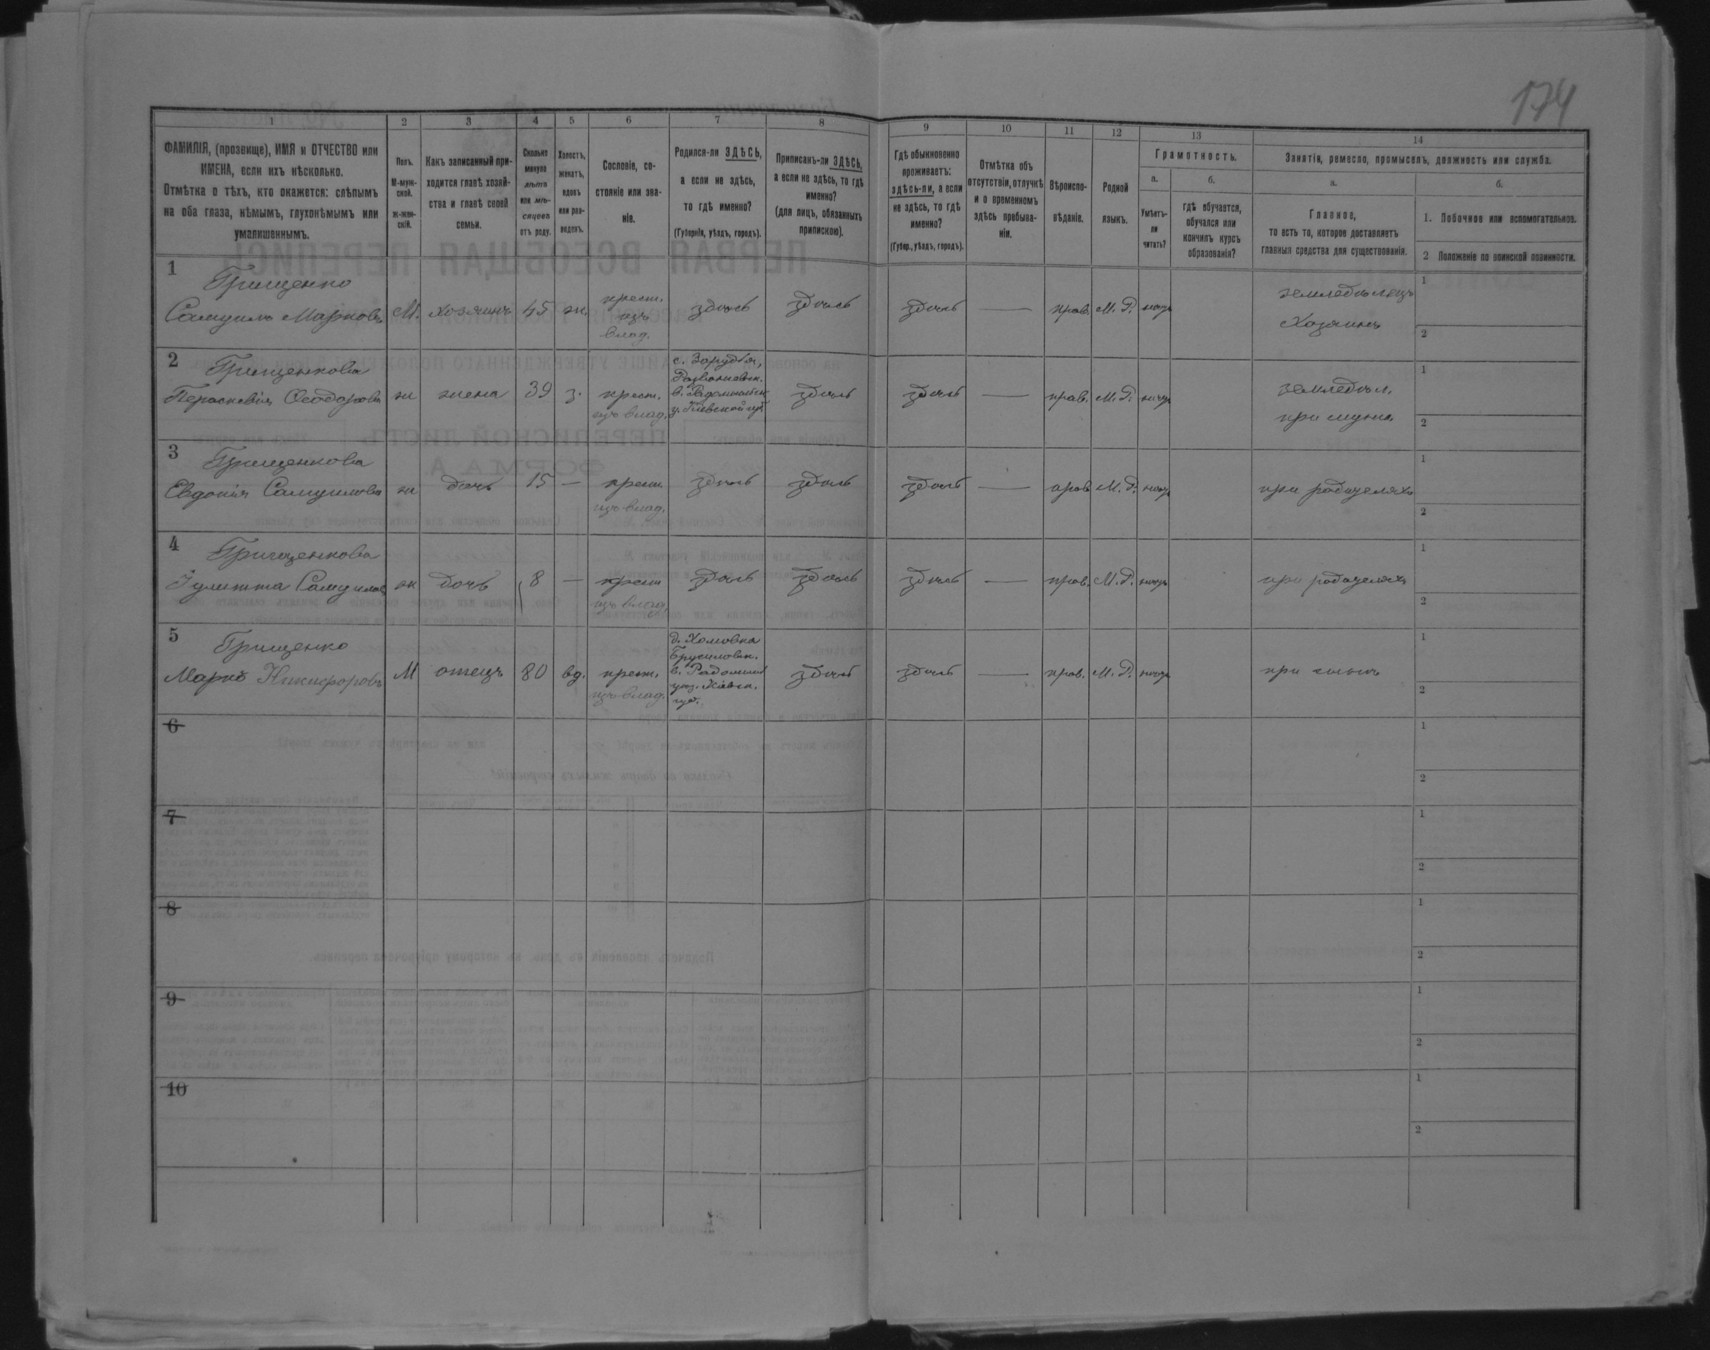 174
1
2
3
4
5
6
7
8
9
10
11
12
13
14
ФАМИЛІЯ, (прозвище), ИМЯ и ОТЧЕСТВО или
ИМЕНА, если ихъ нѣсколько.
Отмѣтка о тѣхъ, кто окажется: слѣпымъ
на оба глаза, нѣмымъ, глухонѣмымъ или
умалишеннымъ.
Полъ.
М-муж-
ской.
ж-жен-
скій.
Какъ записанный при-
ходится главѣ хозяй-
ства и главѣ своей
семьи.
Сколько
минуло
лѣтъ
или мѣ-
сяцевъ
отъ роду.
Холостъ,
женатъ,
вдовъ
или раз-
веденъ.
Сословіе, со-
стояніе или зва-
ніе.
Родился-ли ЗДѢСЬ,
а если не здѣсь,
то гдѣ именно?
(Губернія, уѣздъ, городъ).
Приписанъ-ли ЗДѢСЬ,
а если не здѣсь, то гдѣ
именно?
(для лицъ, обязанныхъ
припискою).
Гдѣ обыкновенно
проживаетъ:
здѣсь-ли, а если
не здѣсь, то гдѣ
именно?
(Губер., уѣздъ, городъ).
Отмѣтка объ
отсутствіи, отлучкѣ
и о временномъ
здѣсь пребыва-
ніи.
Вѣроиспо-
вѣданіе.
Родной
языкъ.
Грамотность.
а.
Умѣетъ-
ли
читать?
б.
гдѣ обучается,
обучался или
кончилъ курсъ
образованія?
Занятіе, ремесло, промыселъ, должность или служба.
а.
Главное,
то есть то, которое доставляетъ
главныя средства для существованія.
б.
1. Побочное или вспомогательное.
2 Положеніе по воинской повинности.
1
Грищенко
Самуилъ Марковъ
М.
хозяинъ
45
жн.
крест.
изъ
влад.
здѣсь
здѣсь
здѣсь
—
прав.
М. Р.
земледѣлецъ
Хозяинъ
1
2
2
Грищенкова
Параскевія Ѳеодорова
ж
жена
39
з.
крест.
изъ влад.
с. Зарудья,
у. Кіевской губ
здѣсь
здѣсь
—
прав.
М. Р.
земледѣл.
при мужѣ
1
2
3
Грищенкова
Евдокія Самуилова
ж
дочь
15
—
крест.
изъ влад.
здѣсь
здѣсь
здѣсь
—
прав.
М. Р.
при родителяхъ
1
2
4
Грищенкова
Іулитта Самуилов
ж
дочь
8
—
крест
изъ влад.
здѣсь
здѣсь
здѣсь
—
прав.
М. Р.
при родителяхъ
1
2
5
Грищенко
Маркъ Никифоровъ
М
отецъ
80
вд.
крест.
изъ влад.
Брусиловск.
губ.
здѣсь
здѣсь
—
прав.
М. Р.
при сынѣ
1
2
6
1
2
7
1
2
8
1
2
9
1
2
10
1
2